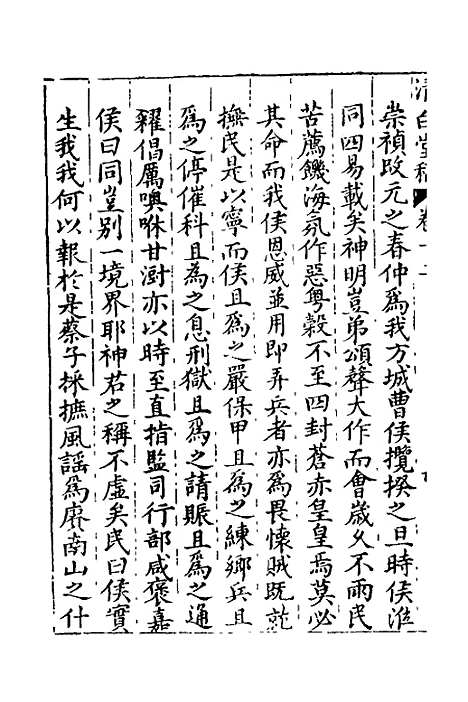 清白堂稿 卷十二
崇禎改元之春仲爲我方城曹侯攬揆之旦時侯涖
同四易載矣神明豈弟頌聲大作而會歲久不雨民
苦薦饑海氛作惡粤穀不至四封蒼赤皇皇焉莫必
其命而我侯恩威並用即弄兵者亦爲畏懷賊既就
撫民是以寧而侯且爲之嚴保甲且爲之練鄉兵且
爲之停催科且爲之息刑獄且爲之請賑且爲之通
糴倡厲噢咻甘澍亦以時至直指監司行部咸褒嘉
侯曰同豈别一境界耶神君之稱不虛矣民曰侯實
生我我何以報於是蔡子採摭風謡爲賡南山之什